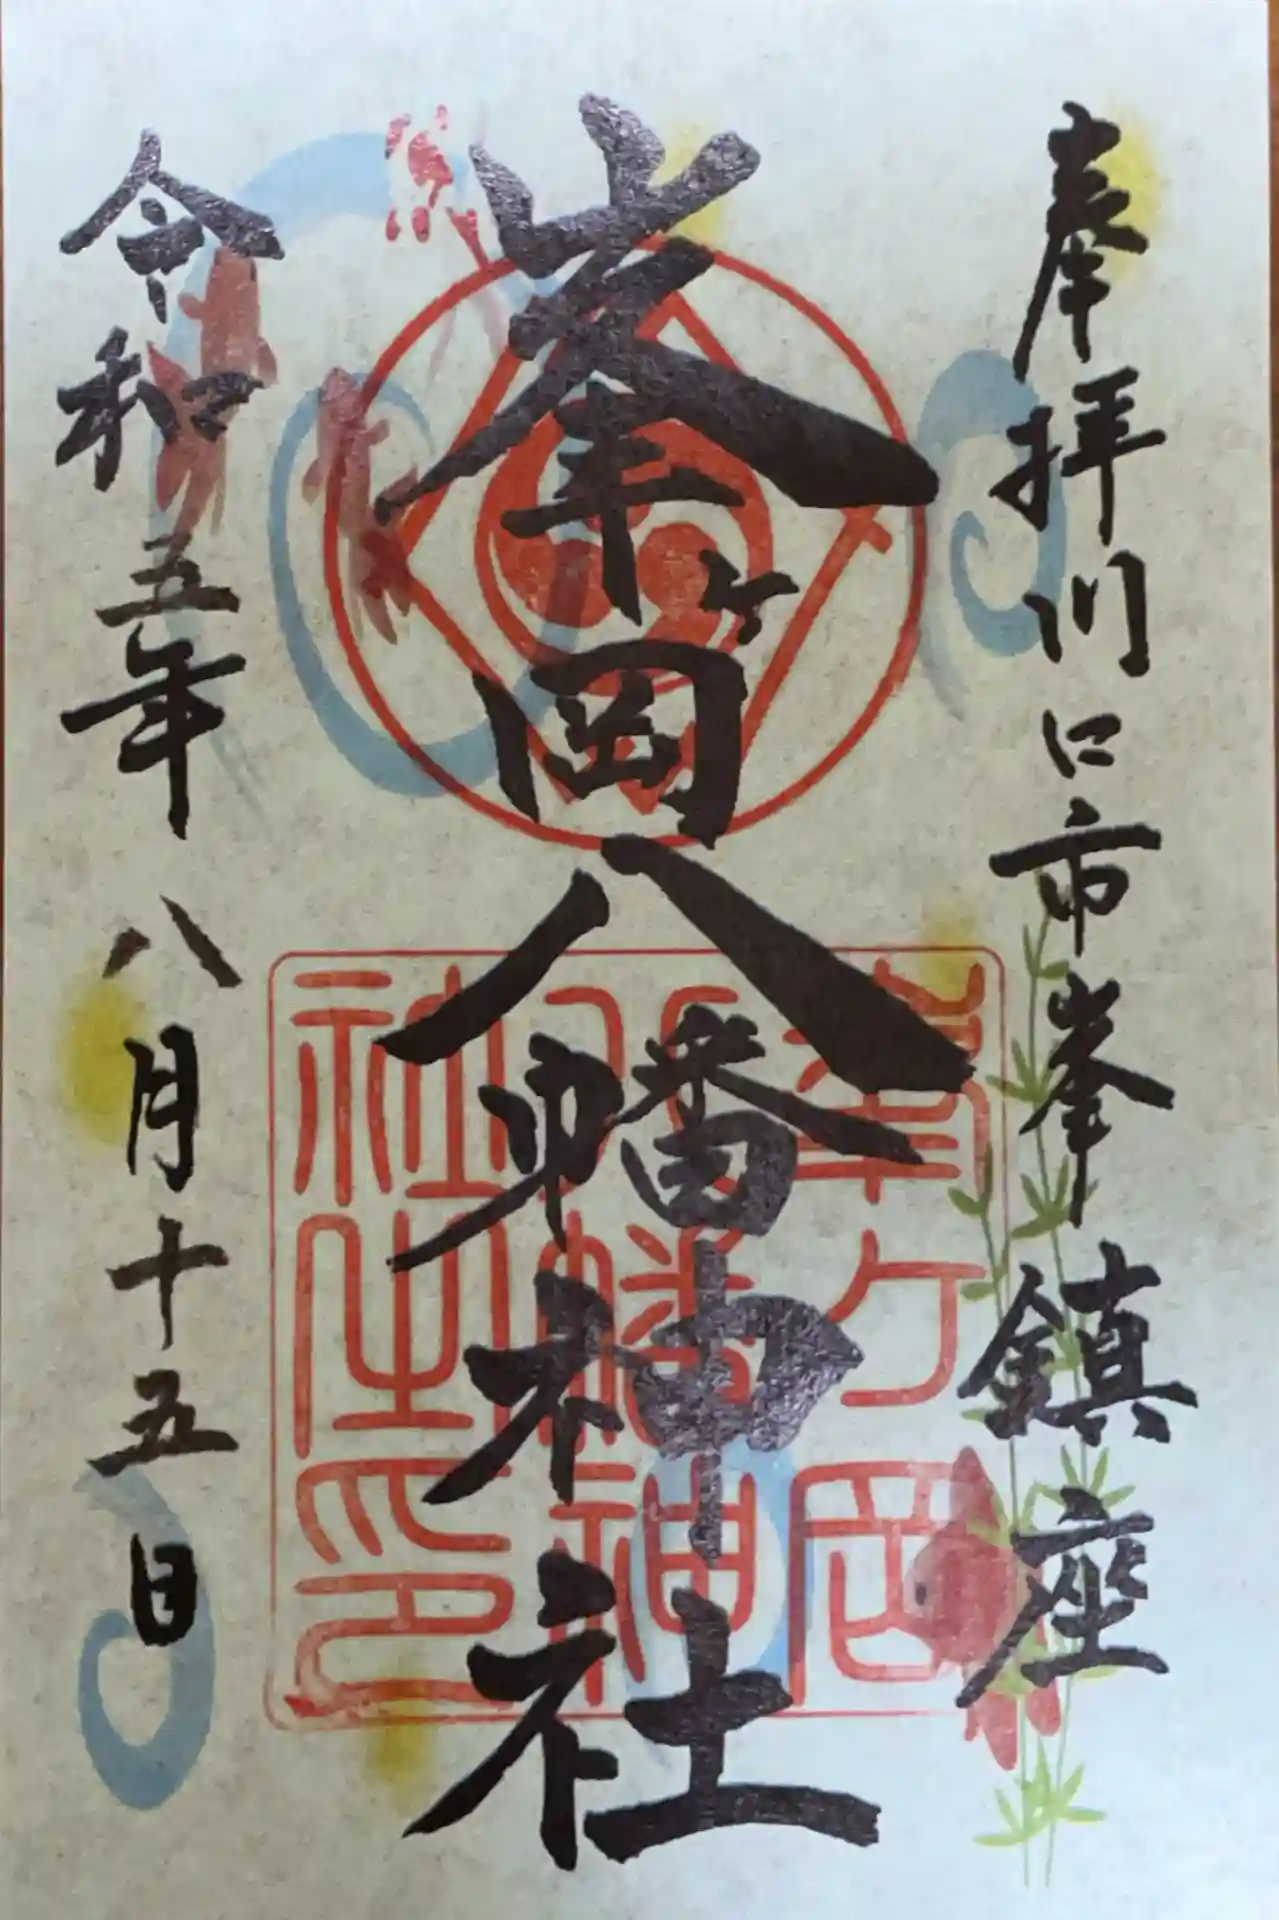 奉拝川口市峯鎮座
峯ヶ岡八幡神社
峯ヶ岡
八幡神
社之印
令和五年八月十五日